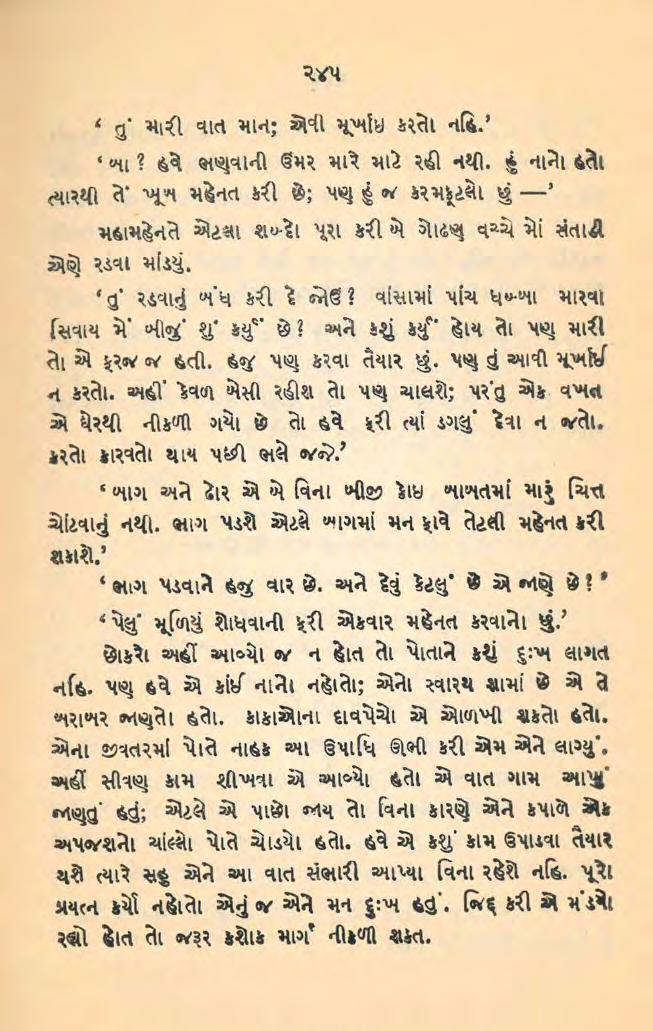 ૨૪૫
‘ તું મારી વાત માન; એવી મૂર્ખાઇ કરતો નહિ.’
‘ બા ? હવે ભણવાની ઉંમર મારે માટે રહી નથી. હું નાનો હતો
ત્યારથી તેં ખૂબ મહેનત કરી છે; પણ હું જ કરમફૂટલો છું —’
મહામહેનતે એટલા શબ્દો પૂરા કરી બે ગોઢણ વચ્ચે મોં સંતાડી
એણે રડવા માંડયું.
‘ તું રડવાનું બંધ કરી દે જોઉં ? વાંસામાં પાંચ ધબ્બા મારવા
સિવાય મેં બીજું શું કર્યું છે ? અને કશું કર્યું હોય તો પણ મારી
તો એ ફરજ જ હતી. હજુ પણ કરવા તૈયાર છું. પણ તું આવી મૂર્ખાઈ
ન કરતો. અહીં કેવળ બેસી રહીશ તો પણ ચાલશે; પરંતુ એક વખત
એ ઘેરથી નીકળી ગયો છે તો હવે ફરી ત્યાં ડગલું દેવા ન જતો.
કરતો કારવતો થાય પછી ભલે જજે.’
‘ બાગ અને ઢોર એ બે વિના બીજી કોઇ બાબતમાં મારું ચિત્ત
ચોંટવાનું નથી. ભાગ પડશે એટલે બાગમાં મન ફાવે તેટલી મહેનત કરી
શકાશે.’
‘ ભાગ પડવાને હજુ વાર છે. અને દેવું કેટલું છે એ જાણે છે ? ’
‘ પેલું મૂળિયું શોધવાની ફરી એકવાર મહેનત કરવાનો છું.’
છોકરો અહીં આવ્યો જ ન હોત તો પોતાને કશું દુઃખ લાગત
નહિ. પણ હવે એ કાંઈ નાનો નહોતો; એનો સ્વારથ શામાં છે એ તે
બરાબર જાણતો હતો. કાકાઓના દાવપેચો એ ઓળખી શકતો હતો.
એના જીવતરમાં પોતે નાહક આ ઉપાધિ ઊભી કરી એમ એને લાગ્યું.
અહીં સીવણ કામ શીખવા એ આવ્યો હતો એ વાત ગામ આખું
જાણતું હતું; એટલે એ પાછો જાય તો વિના કારણે એને કપાળે એક
અપજશનો ચાંલ્લો પોતે ચોડયો હતો. હવે એ કશું કામ ઉપાડવા તૈયાર
થશે ત્યારે સહુ એને આ વાત સંભારી આપ્યા વિના રહેશે નહિ. પૂરો
પ્રયત્ન કર્યો નહોતો એનું જ એને મન દુઃખ હતું. જિદ્દ કરી એ મંડયો
રહ્યો હોત તો જરૂર કશોક માર્ગ નીકળી શકત.